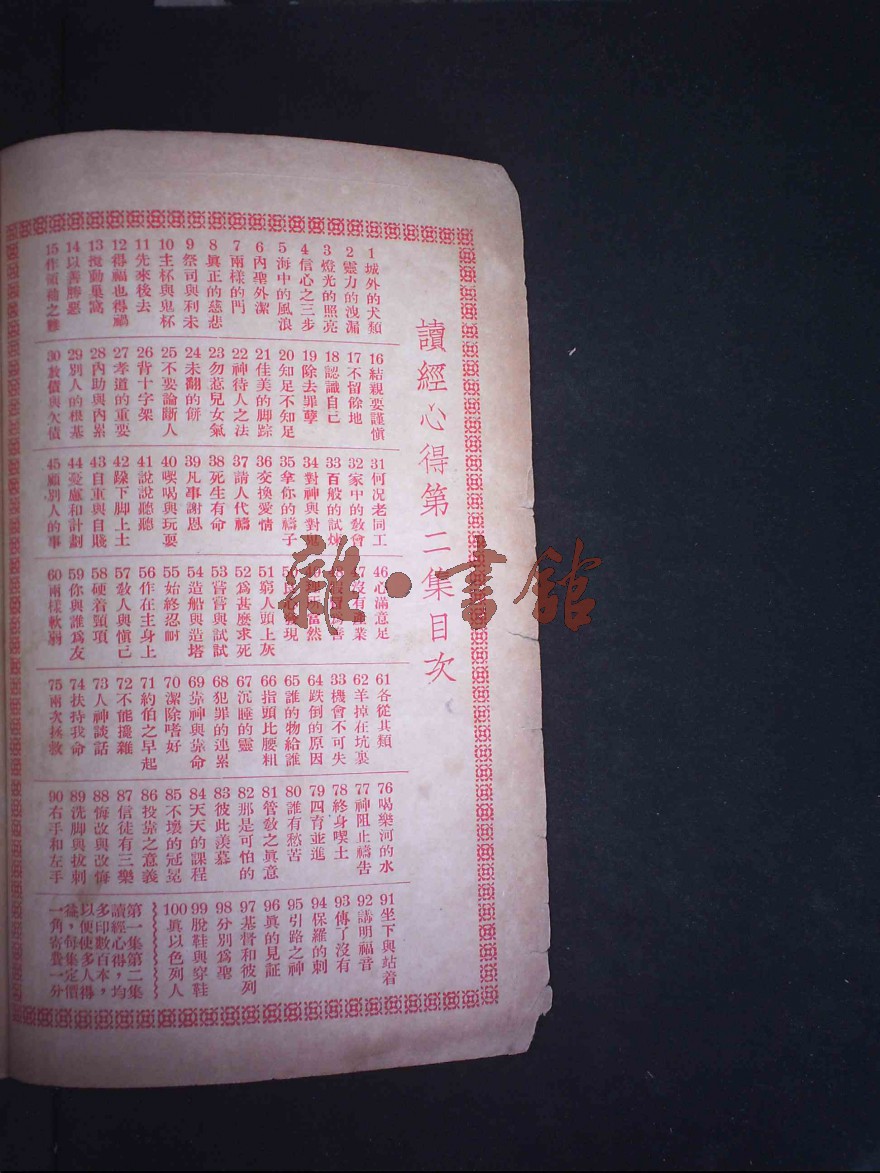 讀經心得第二集目次
1 城外的犬類
2 靈力的洩漏
3 燈光的照亮
4 信心之三步
5 海中的風浪
6 內聖外潔
7 兩樣的門
8 眞正的慈悲
9 祭司與利未
10 主杯與鬼杯
11 先來後去
12 得福也得禍
13 攪動巢窩
14 以善勝惡
15 作領袖之難
16 結親要謹愼
17 不留餘地
18 認識自己
19 除去罪孽
20 知足不知足
21 佳美的脚踪
22 神待人之法
23 勿惹兒女氣
24 未翻的餅
25 不要論斷人
26 背十字架
27 孝道的重要
28 內助與內累
29 別人的根基
30 放債與欠債
31 何况老同工
32 家中的敎會
33 百般的試煉
34 對神與對鬼
35 拿你的禱子
36 交換愛情
37 請人代禱
38 死生有命
39 凡事謝恩
40 喫喝與玩耍
41 說說聽聽
42 跺下脚上土
43 自重與自賤
44 憂慮和計劃
45 顧別人的事
46 心滿意足
47 沒有產業
善
當然
現
51 窮人頭上灰
52 爲甚麽求死
53 嘗嘗與試試
54 造船與造塔
55 始終忍耐
56 作在主身上
57 敎人與愼己
58 硬着頸項
59 你與誰爲友
60 兩樣軟弱
61 各從其類
62 羊掉在坑裏
33 機會不可失
64 跌倒的原因
65 誰的物給誰
66 指頭比腰粗
67 沉睡的靈
68 犯罪的連累
69 靠神與靠命
70 潔除嗜好
71 約伯之早起
72 不能攙雜
73 人神談話
74 扶持我命
75 兩次拯救
76 喝樂河的水
77 神阻止禱告
78 終身喫土
79 四育並進
80 誰有愁苦
81 管敎之眞意
82 那是可怕的
83 彼此羨慕
84 天天的課程
85 不壞的冠冕
86 投靠之意義
87 信徒有三樂
88 悔改與改悔
89 洗脚與拔刺
90 右手和左手
91 坐下與站着
92 講明福音
93 傳了沒有
94 保羅的刺
95 引路之神
96 眞的見証
97 基督和彼列
98 分別爲聖
99 脫鞋與穿鞋
100 眞以色列人
第一集第二集
讀經心得，均
多印數百本，
以便使多人得
益，每集定價
一角寄費一分
雜·書館